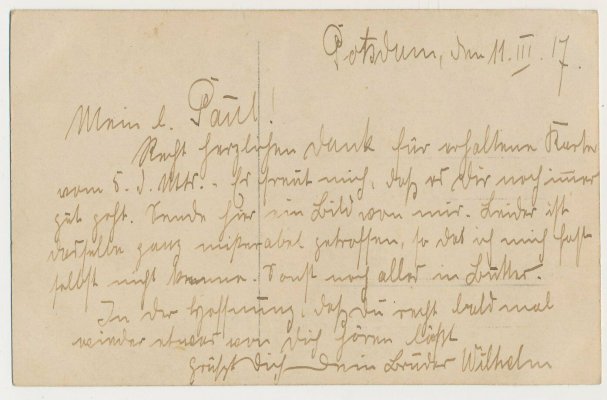 Potsdam, den 11. III. 17.
Mein l. Paul!
Recht herzlichen Dank für erhaltene Karte
vom 5. d. Mts. - Es freut mich, daß es Dir noch immer
gut geht. Sende hier ein Bild von mir. Leider ist
dasselbe ganz miserabel getroffen, so daß ich mich fast
selbst nicht kenne. Sonst noch alles in Butter.
In der Hoffnung, daß Du recht bald mal
wieder etwas von Dich hören läßt
grüßt Dich Dein Bruder Wilhelm